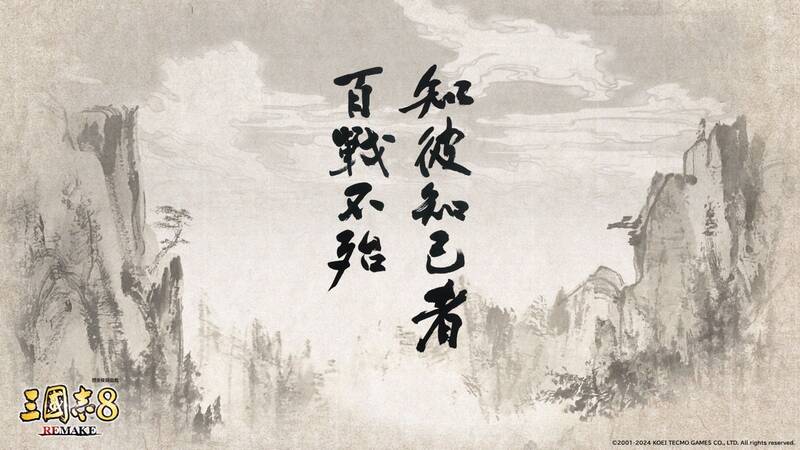 知彼知己者
百戰不殆
三國志8
REMAKE
©2001-2024 KOEI TECMO GAMES CO., LTD. All rights reserved.